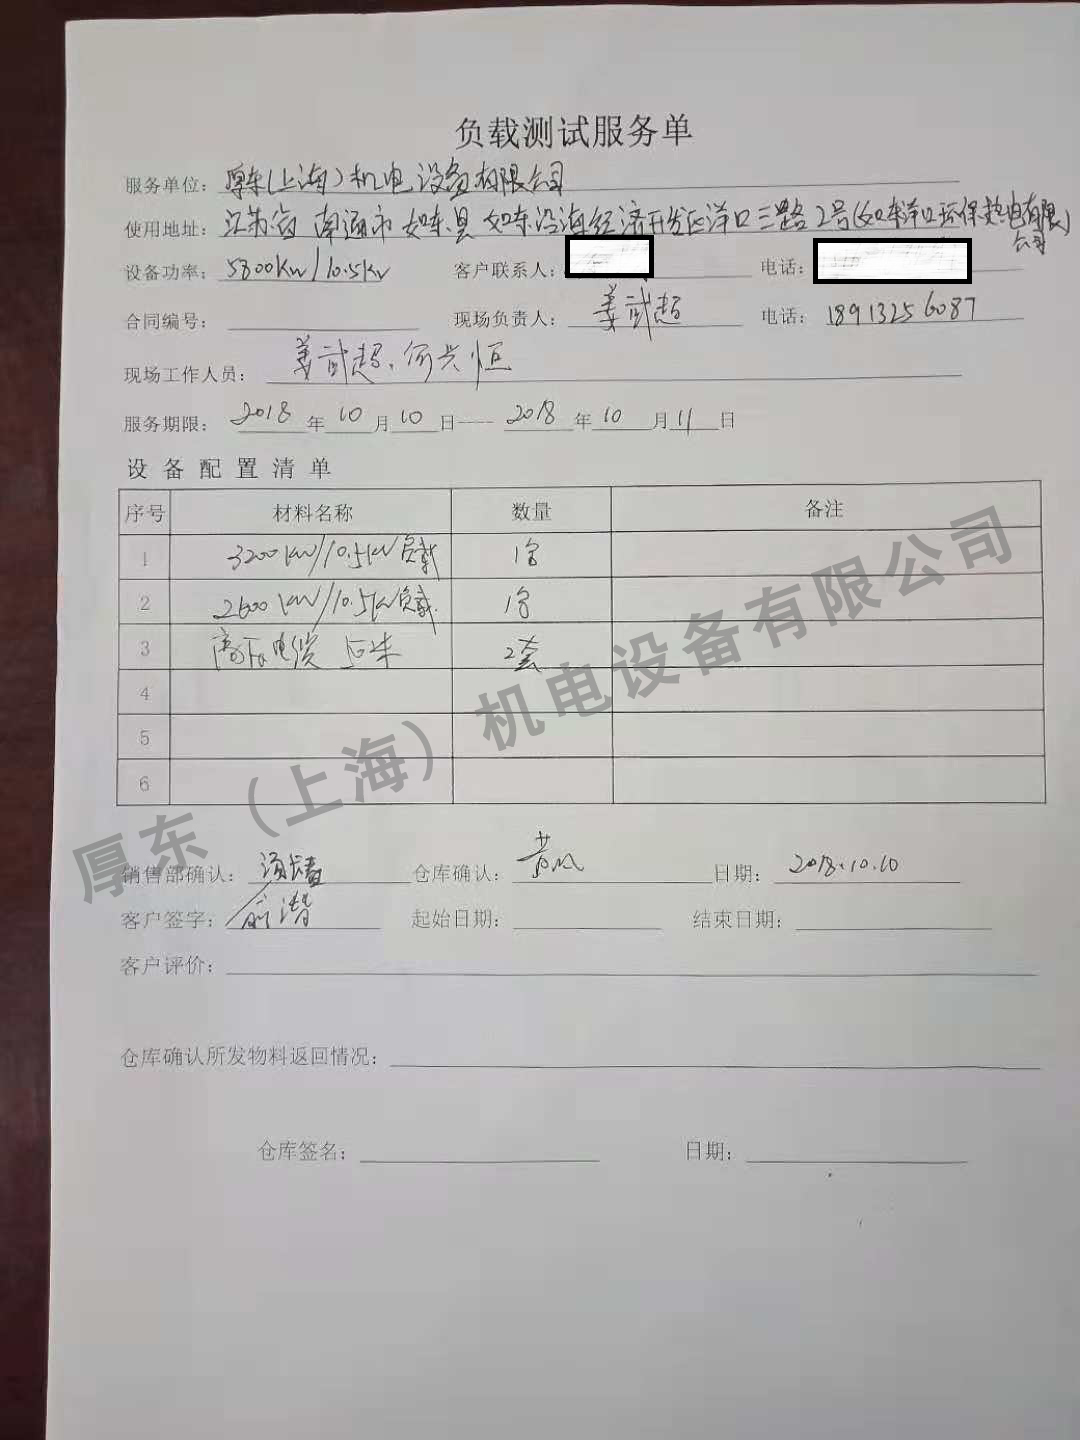 负载测试服务单
服务单位：厚东(上海)机电设备有限公司
使用地址：江苏省南通市如东县如东沿海经济开发区洋口三路2号(如东洋口环保热电有限公司)
设备功率：5800kw/10.5kv 客户联系人： 电话：
合同编号： 现场负责人：姜武超 电话：18913256087
现场工作人员：姜武超、何兴恒
服务期限：2018年10月10日——2018年10月11日
设备配置清单
序号 材料名称 数量 备注
1 3200kw/10.5kv负载 1台
2 2600kw/10.5kv负载 1台
3 高压电缆 50米 2套
4
5
6
厚东（上海）机电设备有限公司
销售部确认： 仓库确认： 日期：2018.10.10
客户签字：俞潜 起始日期： 结束日期：
客户评价：
仓库确认所发物料返回情况：
仓库签名： 日期：